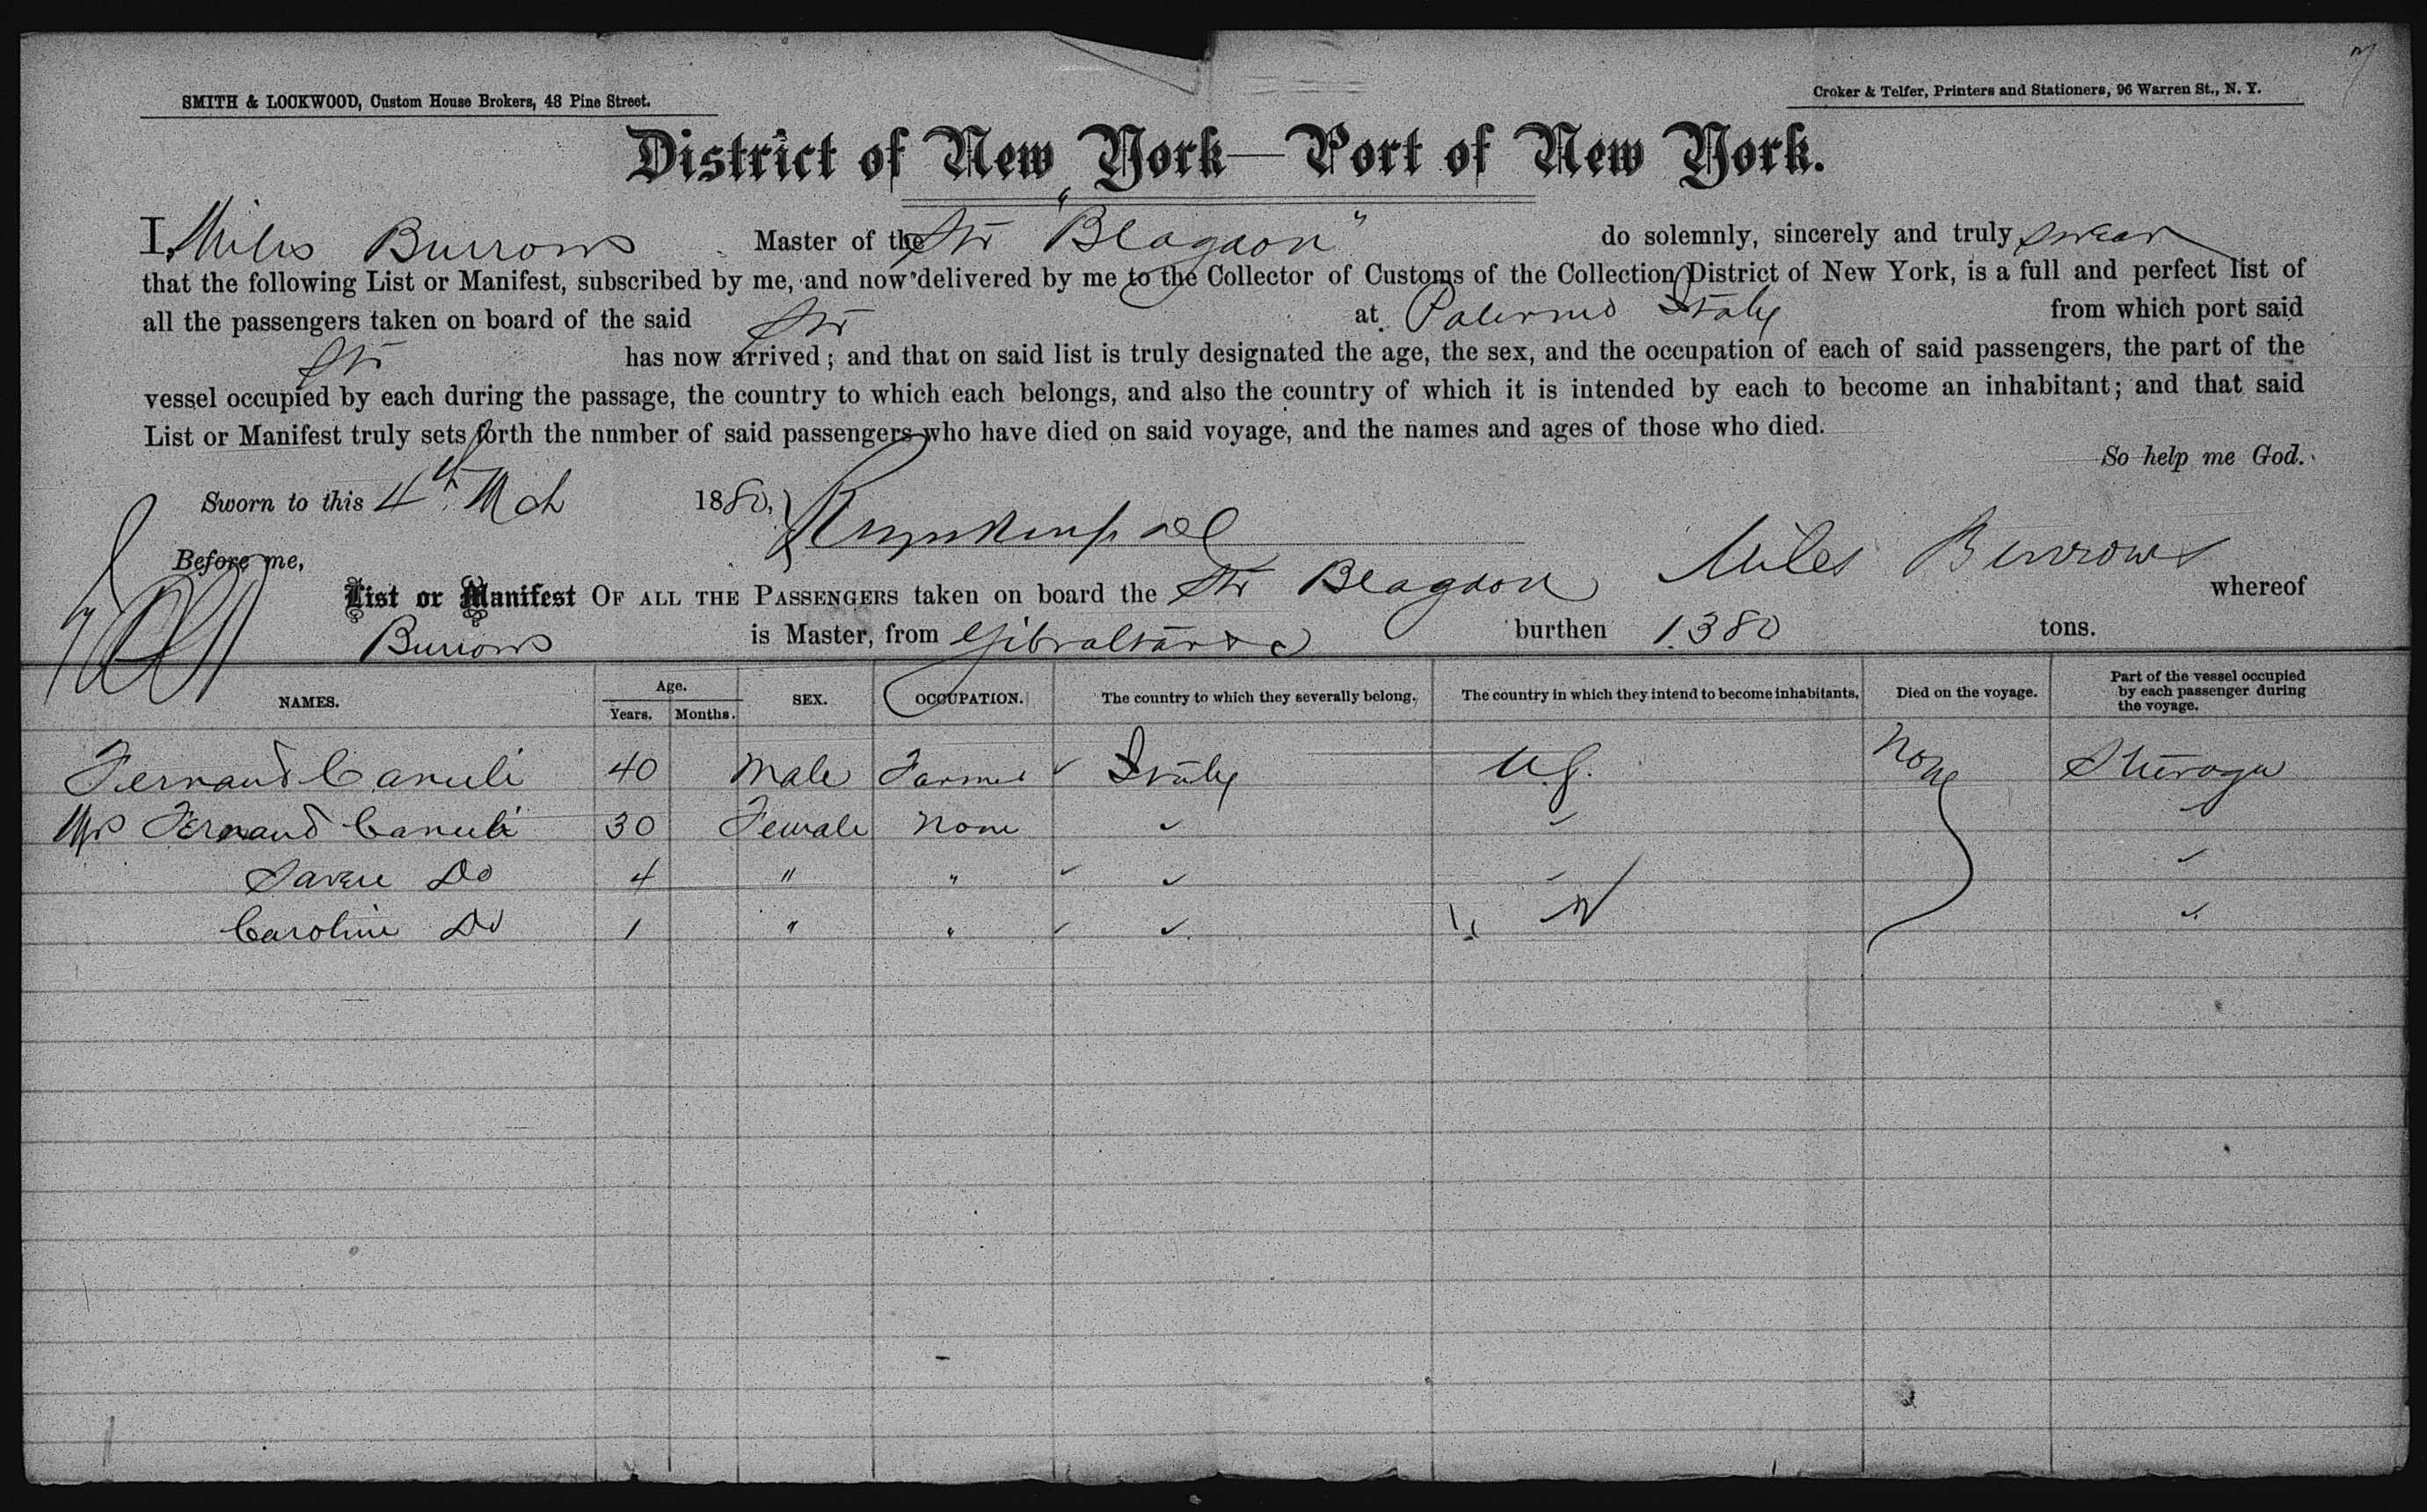 SMITH & LOCKWOOD, Custom House Brokers, 48 Pine Street.
Croker & Telfer, Printers and Stationers, 96 Warren St., N. Y.
District of New York—Port of New York.
I, Miles Burrows Master of the Str "Blagdon" do solemnly, sincerely and truly swear
that the following List or Manifest, subscribed by me, and now delivered by me to the Collector of Customs of the Collection District of New York, is a full and perfect list of
all the passengers taken on board of the said Str at Palermo Italy from which port said
Str has now arrived; and that on said list is truly designated the age, the sex, and the occupation of each of said passengers, the part of the
vessel occupied by each during the passage, the country to which each belongs, and also the country of which it is intended by each to become an inhabitant; and that said
List or Manifest truly sets forth the number of said passengers who have died on said voyage, and the names and ages of those who died.
So help me God.
Sworn to this 4th Mch 1880,
Before me,
Miles Burrows
List or Manifest OF ALL THE PASSENGERS taken on board the Str Blagdon whereof
Burrows is Master, from Gibraltar &c burthen 1380 tons.
NAMES. Age. Years. Months. SEX. OCCUPATION. The country to which they severally belong. The country in which they intend to become inhabitants. Died on the voyage. Part of the vessel occupied by each passenger during the voyage.
Fernand 40 Male Farmer Italy U.S. None Steerage
Mrs Fernand 30 Female None
Do 4 " "
Caroline Do 1 " "